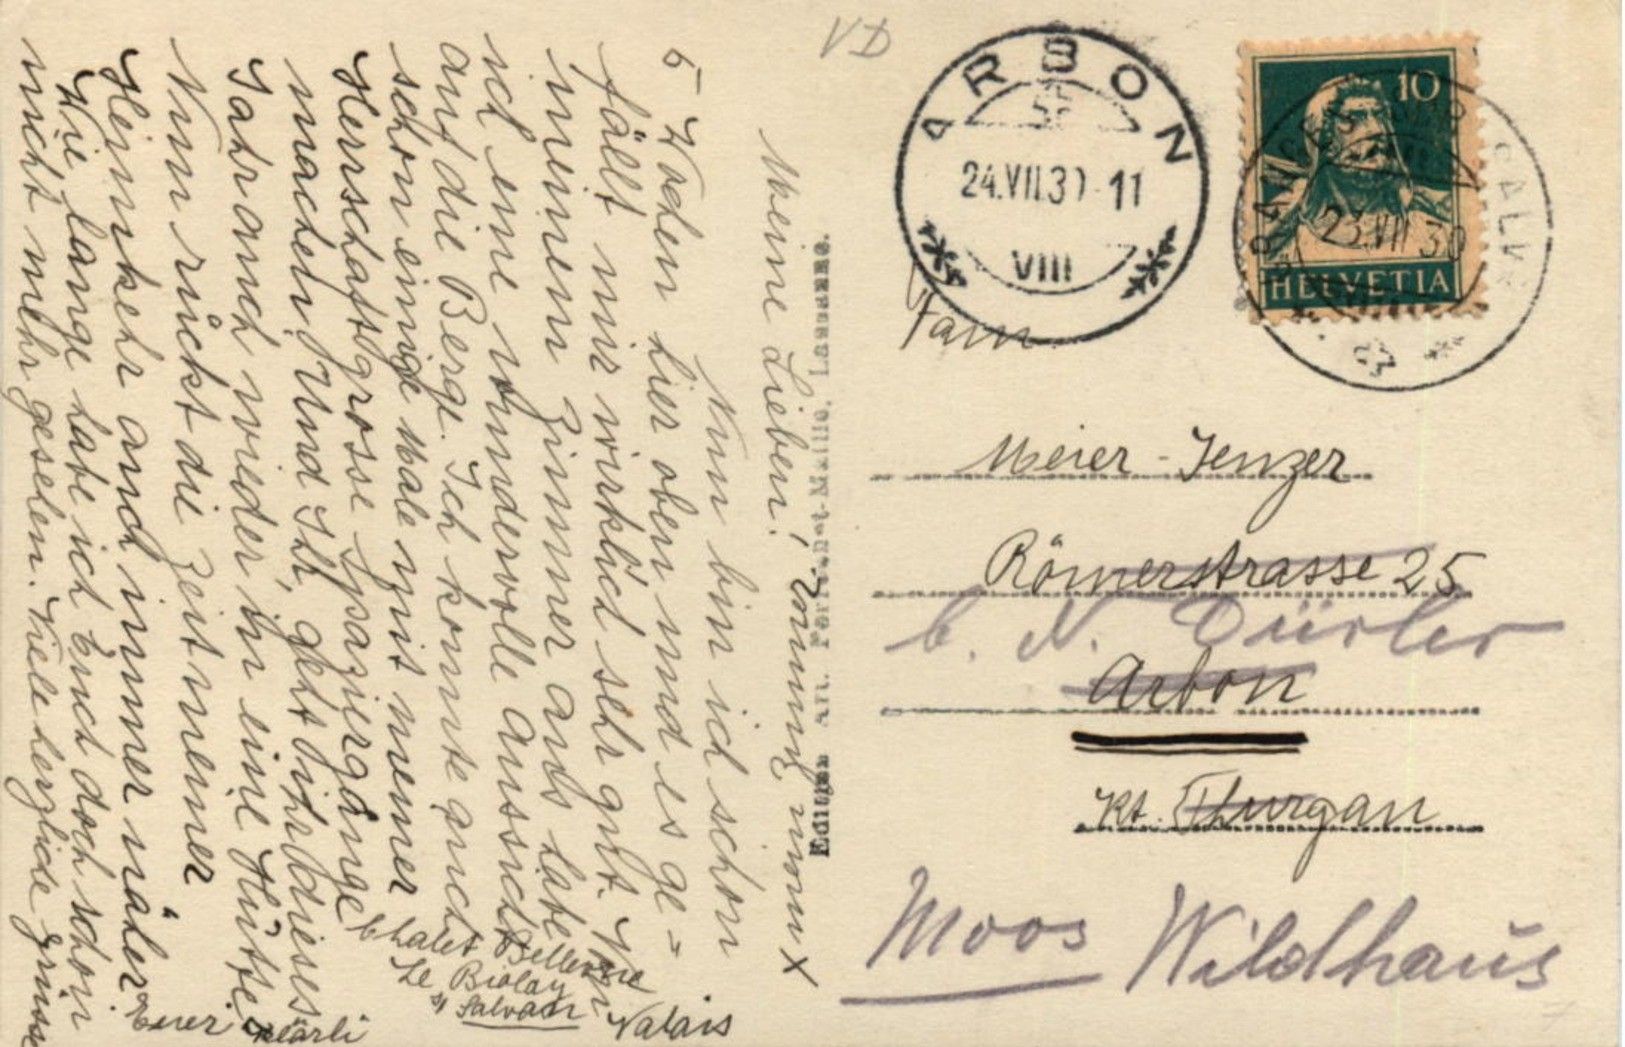 Meine Lieben!
Nun bin ich schon
5 Wochen hier oben und es ge=
fällt mir wirklich sehr gut. Von
meinem Zimmer aus habe
ich eine wundervolle Aussicht
auf die Berge. Ich konnte auch
schon einige Male mit meiner
Herrschaft grosse Spaziergänge
machen. Und Ihr, geht Ihr dieses
Jahr auch wieder in eine Hütte.
Nun rückt die Zeit meiner
Heimkehr auch immer näher
Wie lange habe ich Euch doch schon
nicht mehr gesehen. Viele herzliche Grüsse
Euer Klärli
Chalet Bellevue
Le Biolay
s/ Salvan
Valais
Edition Art. Perrochet-Matile, Lausanne.
VD
ARBON
24.VII.30-11
VIII
10
HELVETIA
23.VII 30
SALV
Fam.
Meier-Jenzer
Römerstrasse 25
b. N. Dürler
Arbon
Kt. Thurgau
Moos Wildhaus